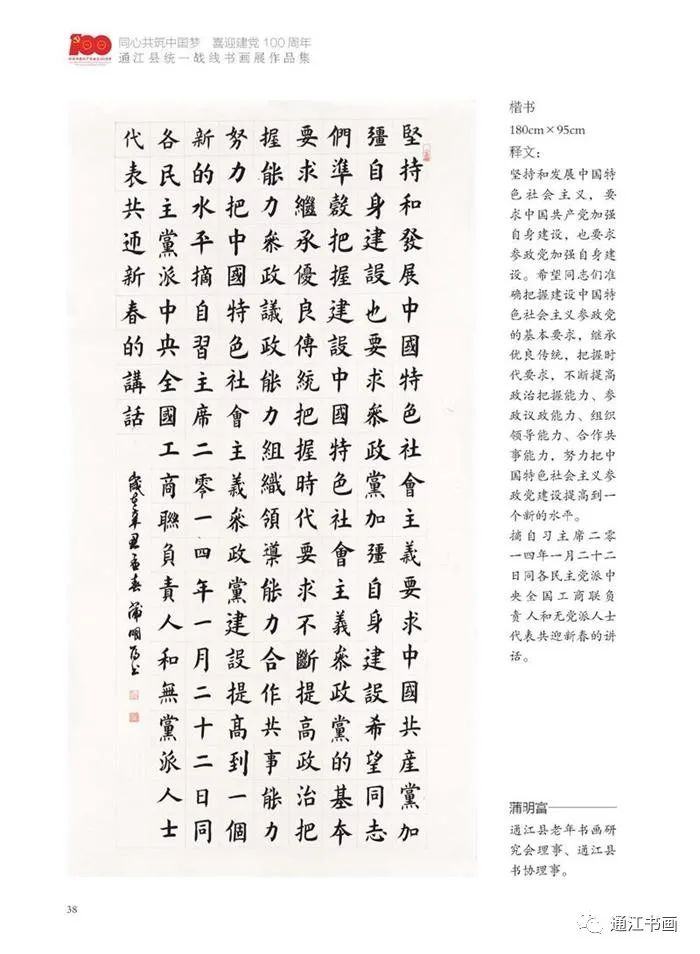 同心共筑中国梦 喜迎建党100周年
通江县统一战线书画展作品集
堅持和發展中國特色社會主義要求中國共產黨加
彊自身建設也要求叅政黨加彊自身建設希望同志
們準縠把握建設中國特色社會主義叅政黨的基本
要求繼承優良傳統把握時代要求不斷提高政治把
握能力叅政議政能力組織領導能力合作共事能力
努力把中國特色社會主義叅政黨建設提高到一個
新的水平摘自習主席二零一四年一月二十二日同
各民主黨派中央全國工商聯負責人和無黨派人士
代表共迊新春的講話
歲在辛丑孟春蒲明富书
楷书
180cm×95cm
释文：
坚持和发展中国特
色社会主义，要
求中国共产党加强
自身建设，也要求
参政党加强自身建
设。希望同志们准
确把握建设中国特
色社会主义参政党
的基本要求，继承
优良传统，把握时
代要求，不断提高
政治把握能力、参
政议政能力、组织
领导能力、合作共
事能力，努力把中
国特色社会主义参
政党建设提高到一
个新的水平。
摘自习主席二零
一四年一月二十二
日同各民主党派中
央全国工商联负
责人和无党派人士
代表共迎新春的讲
话。
蒲明富
通江县老年书画研
究会理事、通江县
书协理事。
38
通江书画